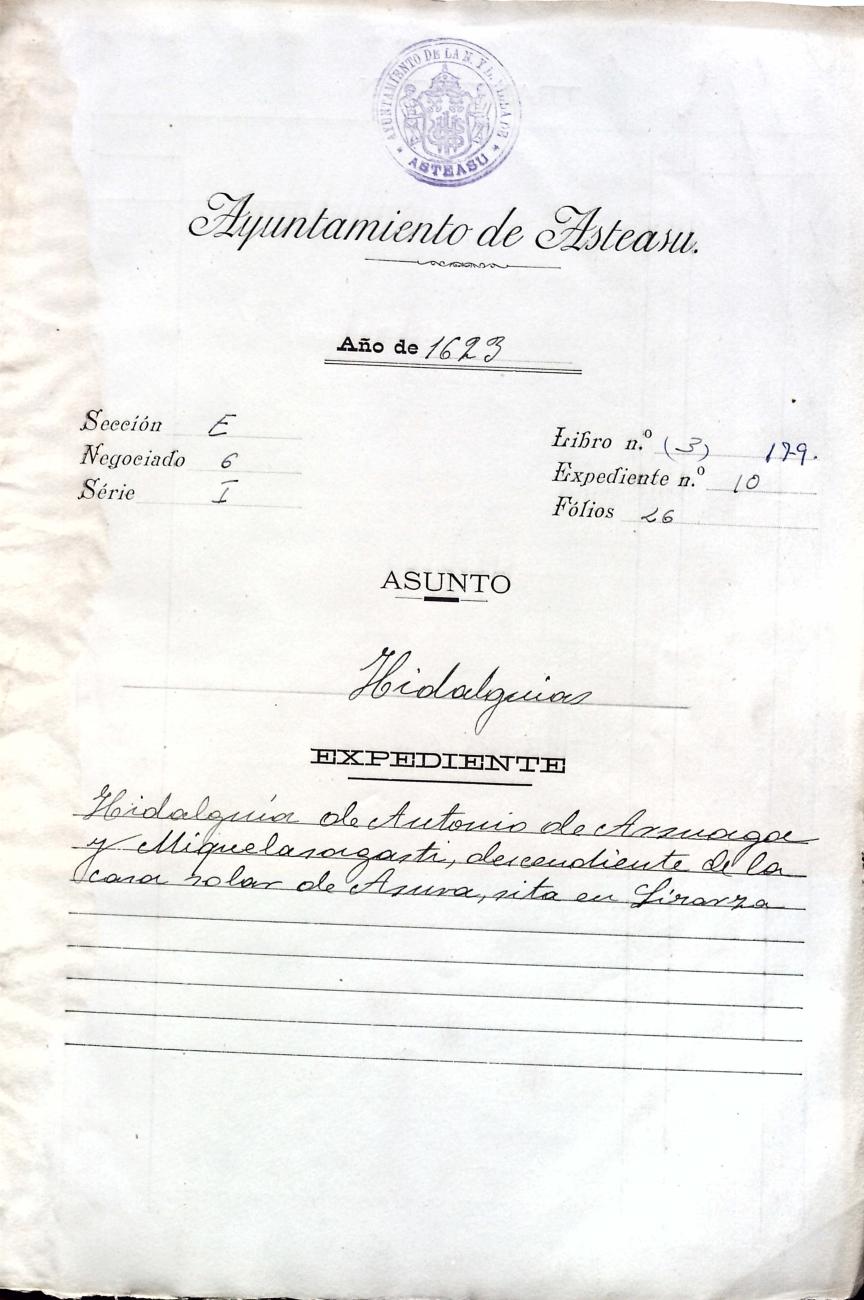 AYUNTAMIENTO DE LA N. Y L. VILLA DE
* ASTEASU *
Ayuntamiento de Asteasu.
Año de 1623
Sección E
Negociado 6
Série I
Libro n.º (3) 179.
Expediente n.º 10
Fólios 26
ASUNTO
Hidalguias
EXPEDIENTE
Hidalguía de Antonio de Arsuaga
y Miquelasagasti, descendiente de la
casa solar de Asura, sita en Lizarza